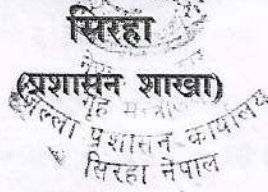 सिरहा
(प्रशासन शाखा)
गृह
जिल्ला प्रशासन कार्यालय
सिरहा नेपाल